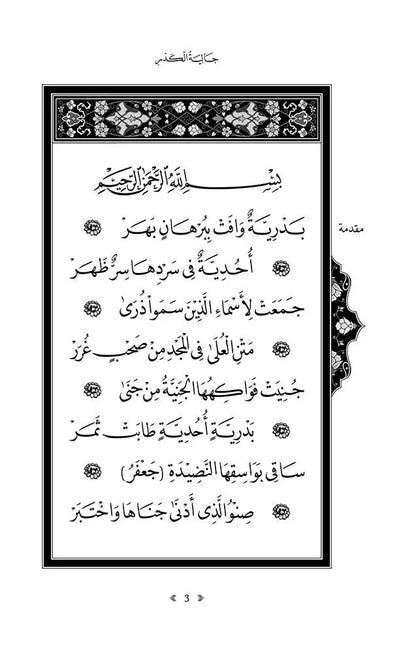 جَالِيَةُ الْكَدَرِ
بِسْمِ اللَّهِ الرَّحْمَنِ الرَّحِيمِ
بَدْرِيَّةٌ وَافَتْ بِبُرْهَانٍ بَهَرْ
مقدمة
أُحُدِيَّةٌ فِي سَرْدِهَا سِرٌّ ظَهَرْ
جَمَعَتْ لِأَسْمَاءِ الَّذِينَ سَمَوْا ذُرَىٰ
مَتْنِ الْعُلَىٰ فِي الْمَجْدِ مِنْ صَحْبٍ غُرَرْ
جُنِيَتْ فَوَاكِهُهَا الْجَنِيَّةُ مِنْ جَنَىٰ
بَدْرِيَّةٍ أُحُدِيَّةٍ طَابَتْ ثَمَرْ
سَاقِي بَوَاسِقِهَا النَّضِيدَةِ (جَعْفَرُ)
صِنْوُ الَّذِي أَدْنَىٰ جَنَاهَا وَاخْتَبَرْ
3